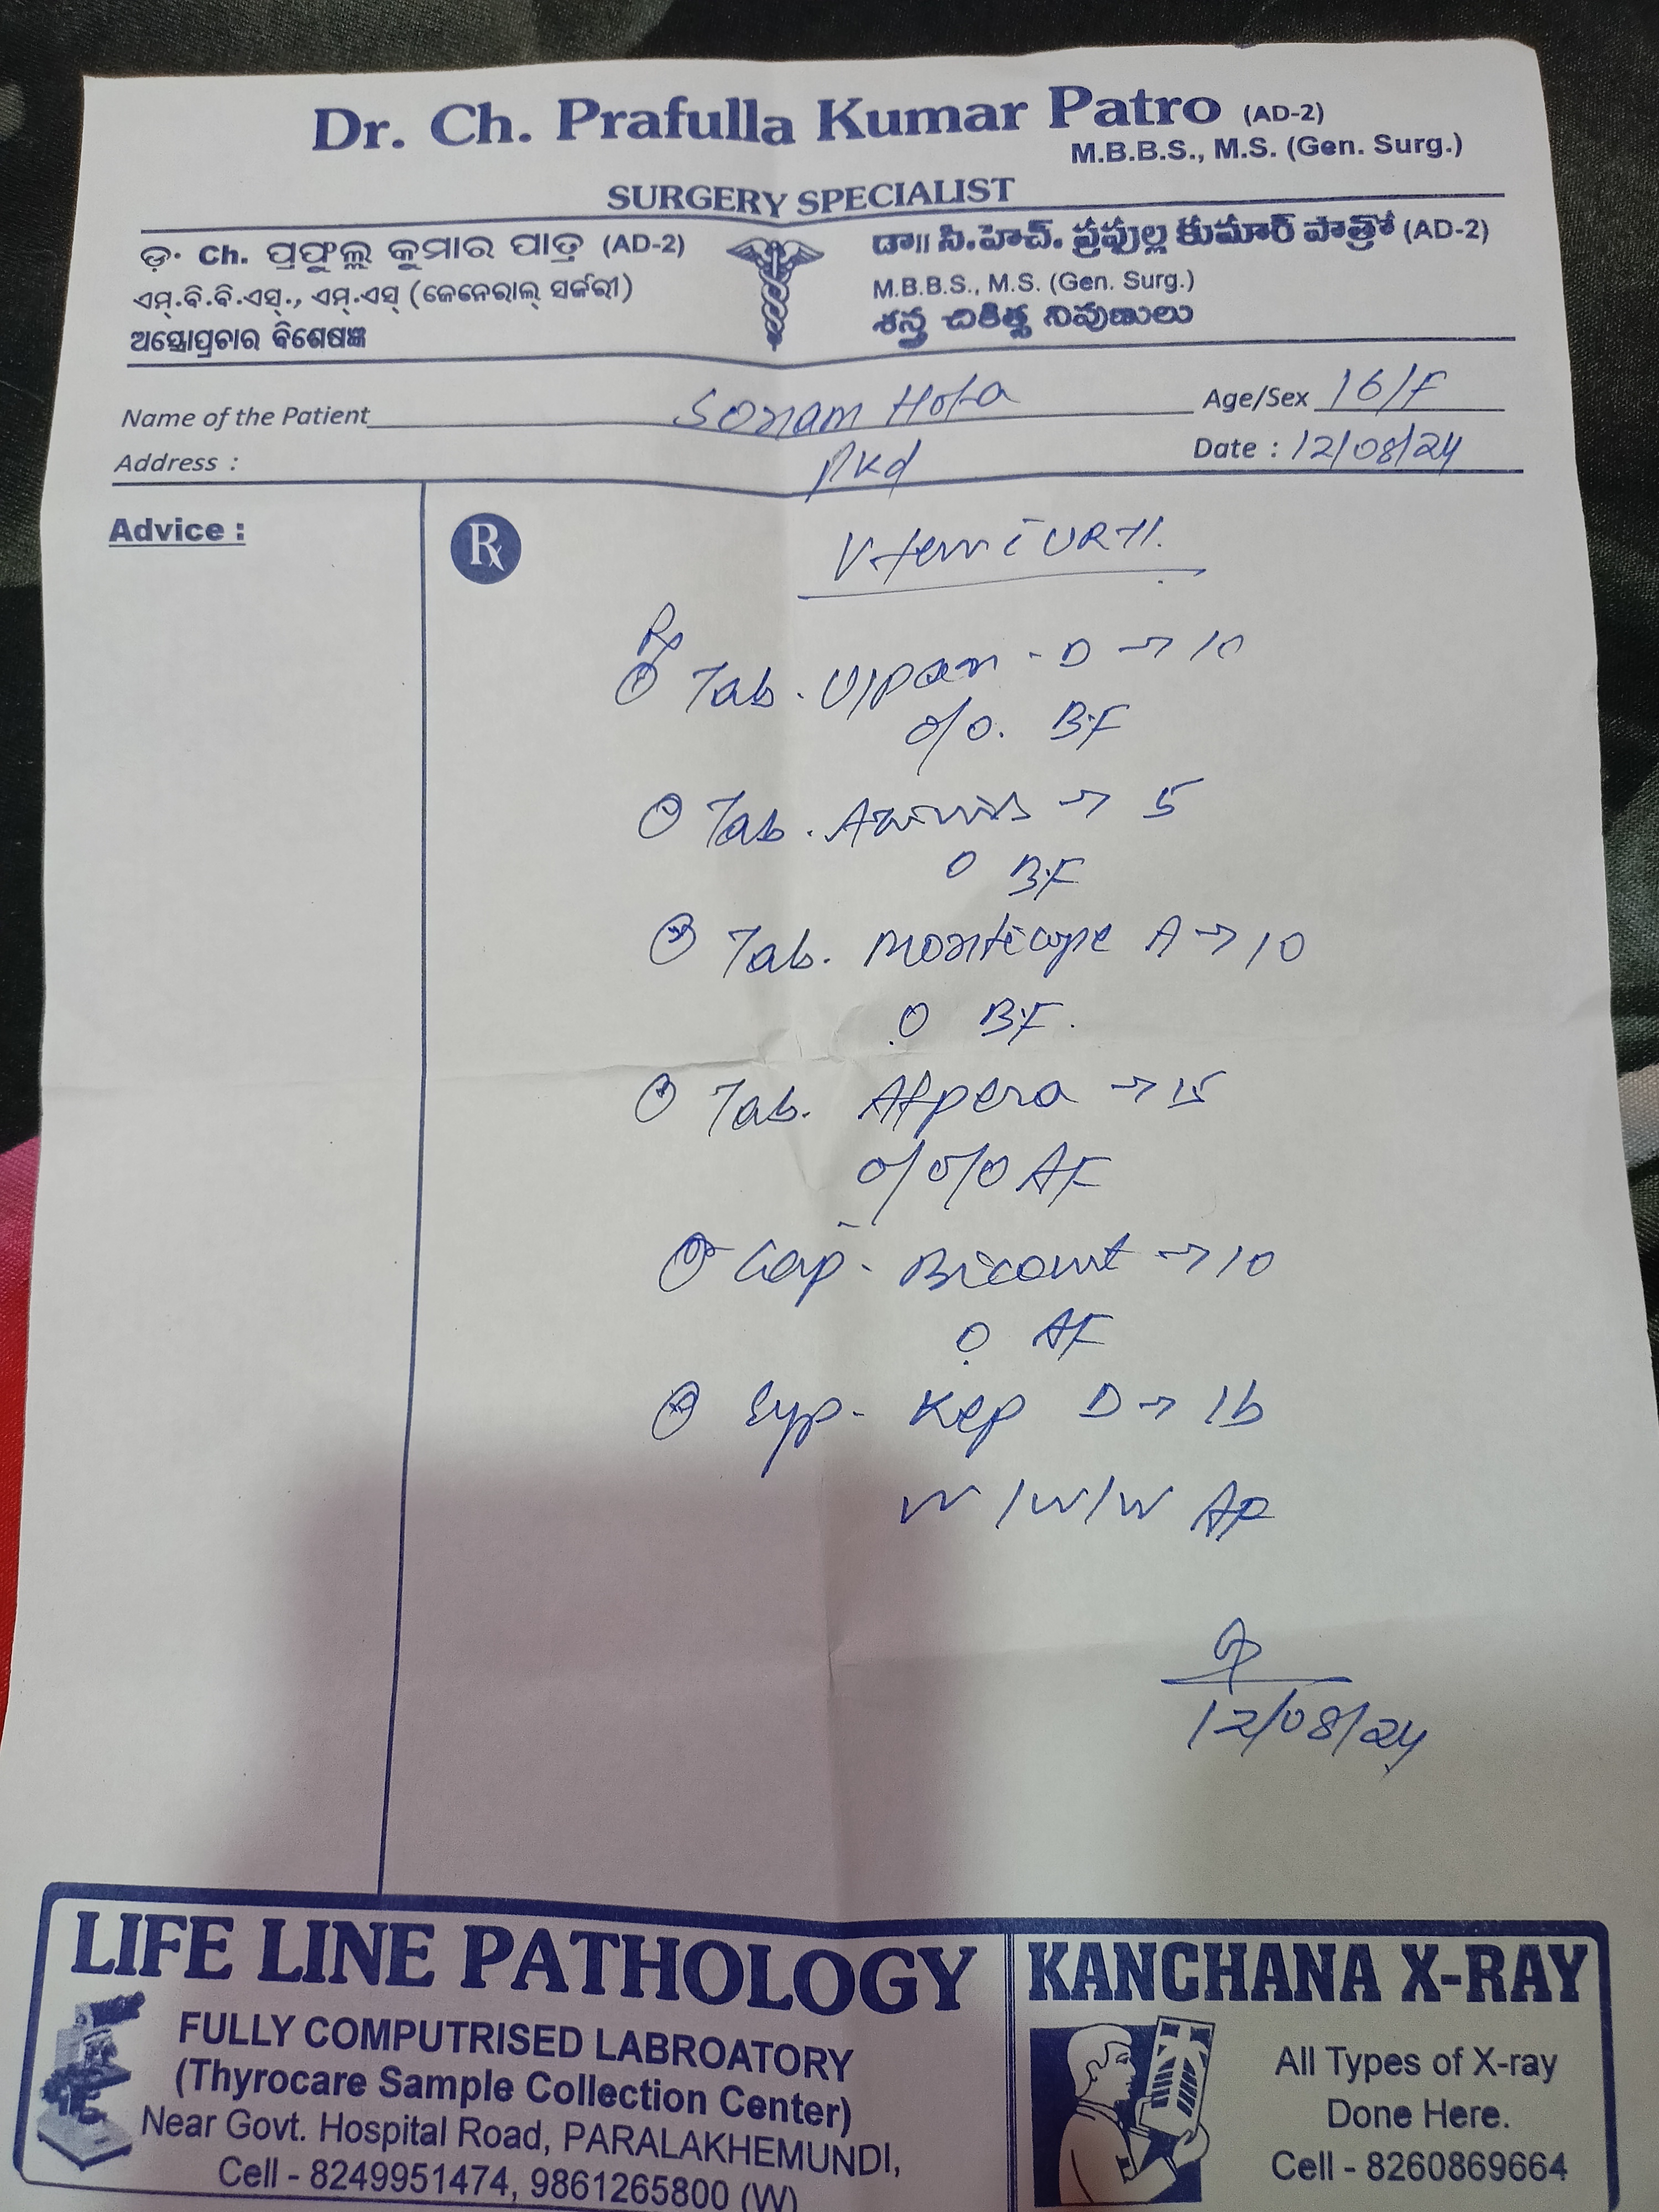 Dr. Ch. Prafulla Kumar Patro (AD-2)
M.B.B.S., M.S. (Gen. Surg.)
SURGERY SPECIALIST
ଡ଼. Ch. ପ୍ରଫୁଲ୍ଲ କୁମାର ପାତ୍ର (AD-2)
ଏମ୍.ବି.ବି.ଏସ୍., ଏମ୍.ଏସ୍ (ଜେନେରାଲ୍ ସର୍ଜରୀ)
ଅସ୍ତ୍ରୋପ୍ରଚାର ବିଶେଷଜ୍ଞ
డా॥ సి.హెచ్. ప్రపుల్ల కుమార్ పాత్రో (AD-2)
M.B.B.S., M.S. (Gen. Surg.)
శస్త్ర చికిత్స నిపుణులు
Name of the Patient Sonam Hota Age/Sex 16/F
Address : pkd Date : 12/08/24
Advice :
Rx
URTI.
Rx
① Tab. - D → 10
0/0. BF
② Tab. → 5
0 BF
③ Tab. Montecope A → 10
0 BF.
④ Tab. Afpera → 15
0/0/0 AF
⑤ Cap - Bicount → 10
0 AF
⑥ Syp - Kep D → 1b
AF
12/08/24
LIFE LINE PATHOLOGY
FULLY COMPUTRISED LABROATORY
(Thyrocare Sample Collection Center)
Near Govt. Hospital Road, PARALAKHEMUNDI,
Cell - 8249951474, 9861265800 (W)
KANCHANA X-RAY
All Types of X-ray
Done Here.
Cell - 8260869664